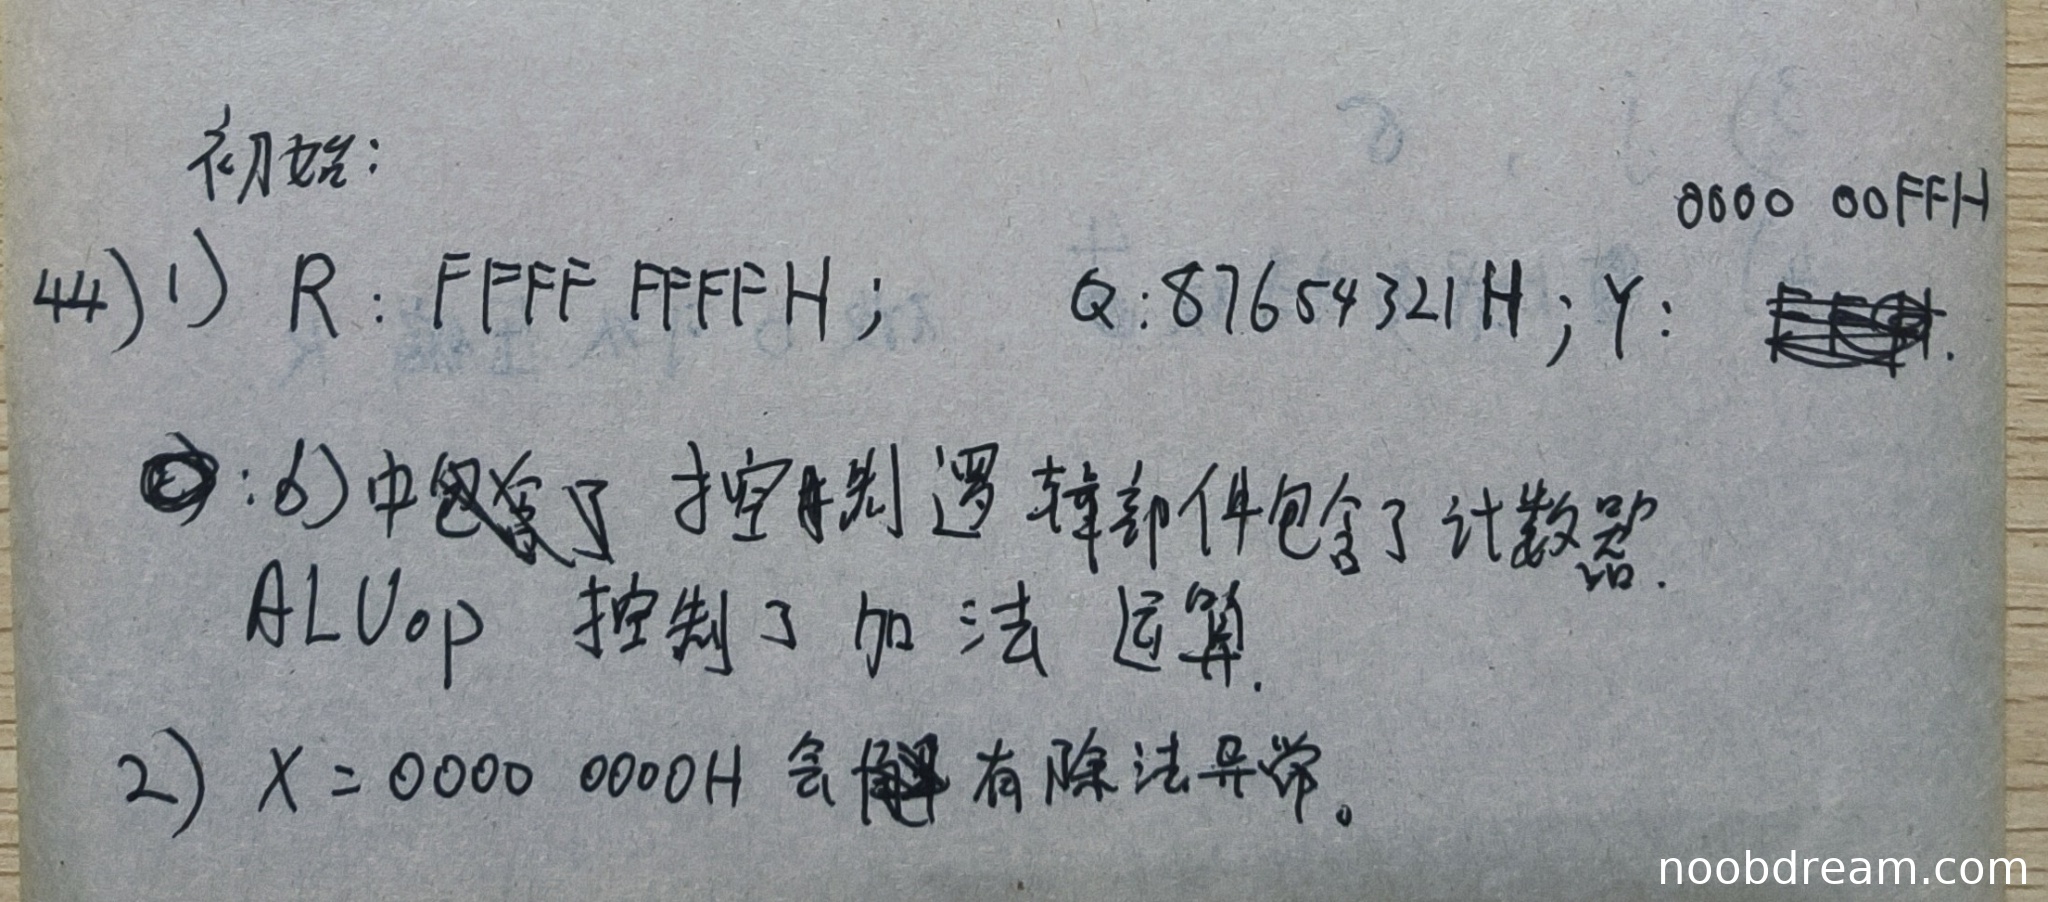 初始:
0000 00FFH
44) 1) R: FFFF FFFFH; Q:87654321H; Y:
:b)中 控制逻辑部件包含了计数器.
ALUop 控制了加法运算.
2) X = 0000 0000H 会有除法异常。
noobdream.com